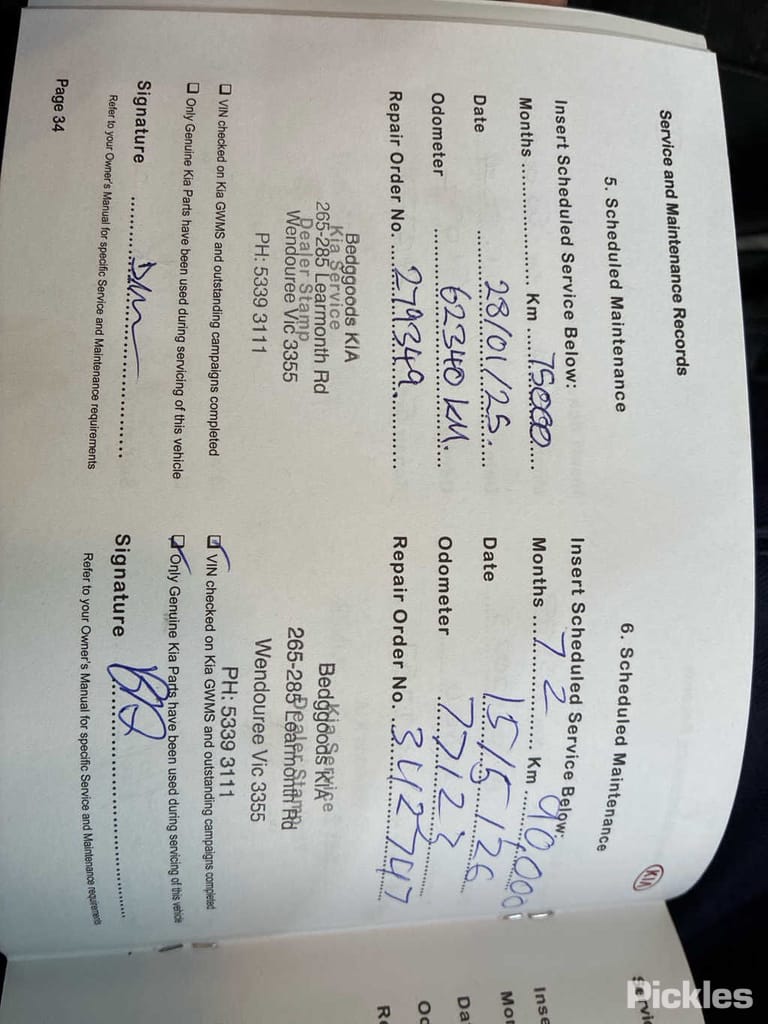 Service and Maintenance Records
5. Scheduled Maintenance
Insert Scheduled Service Below:
Months .................... Km ....75000....
Date ....28/01/25.....
Odometer ....62340 KM.....
Repair Order No. ....279349.....
Bedggoods KIA
Kia Service
265-285 Learmonth Rd
Dealer Stamp
Wendouree Vic 3355
PH: 5339 3111
☐ VIN checked on Kia GWMS and outstanding campaigns completed
☐ Only Genuine Kia Parts have been used during servicing of this vehicle
Signature ........................
Refer to your Owner's Manual for specific Service and Maintenance requirements
Page 34
KIA
6. Scheduled Maintenance
Insert Scheduled Service Below:
Months ....72.... Km ....90,000
Date ....15/5/26....
Odometer ....77123....
Repair Order No. ....342747
Kia Service
Bedggoods KIA
Dealer Stamp
265-285 Learmonth Rd
Wendouree Vic 3355
PH: 5339 3111
☑ VIN checked on Kia GWMS and outstanding campaigns completed
☑ Only Genuine Kia Parts have been used during servicing of this vehicle
Signature ........................
Refer to your Owner's Manual for specific Service and Maintenance requirements
Pickles